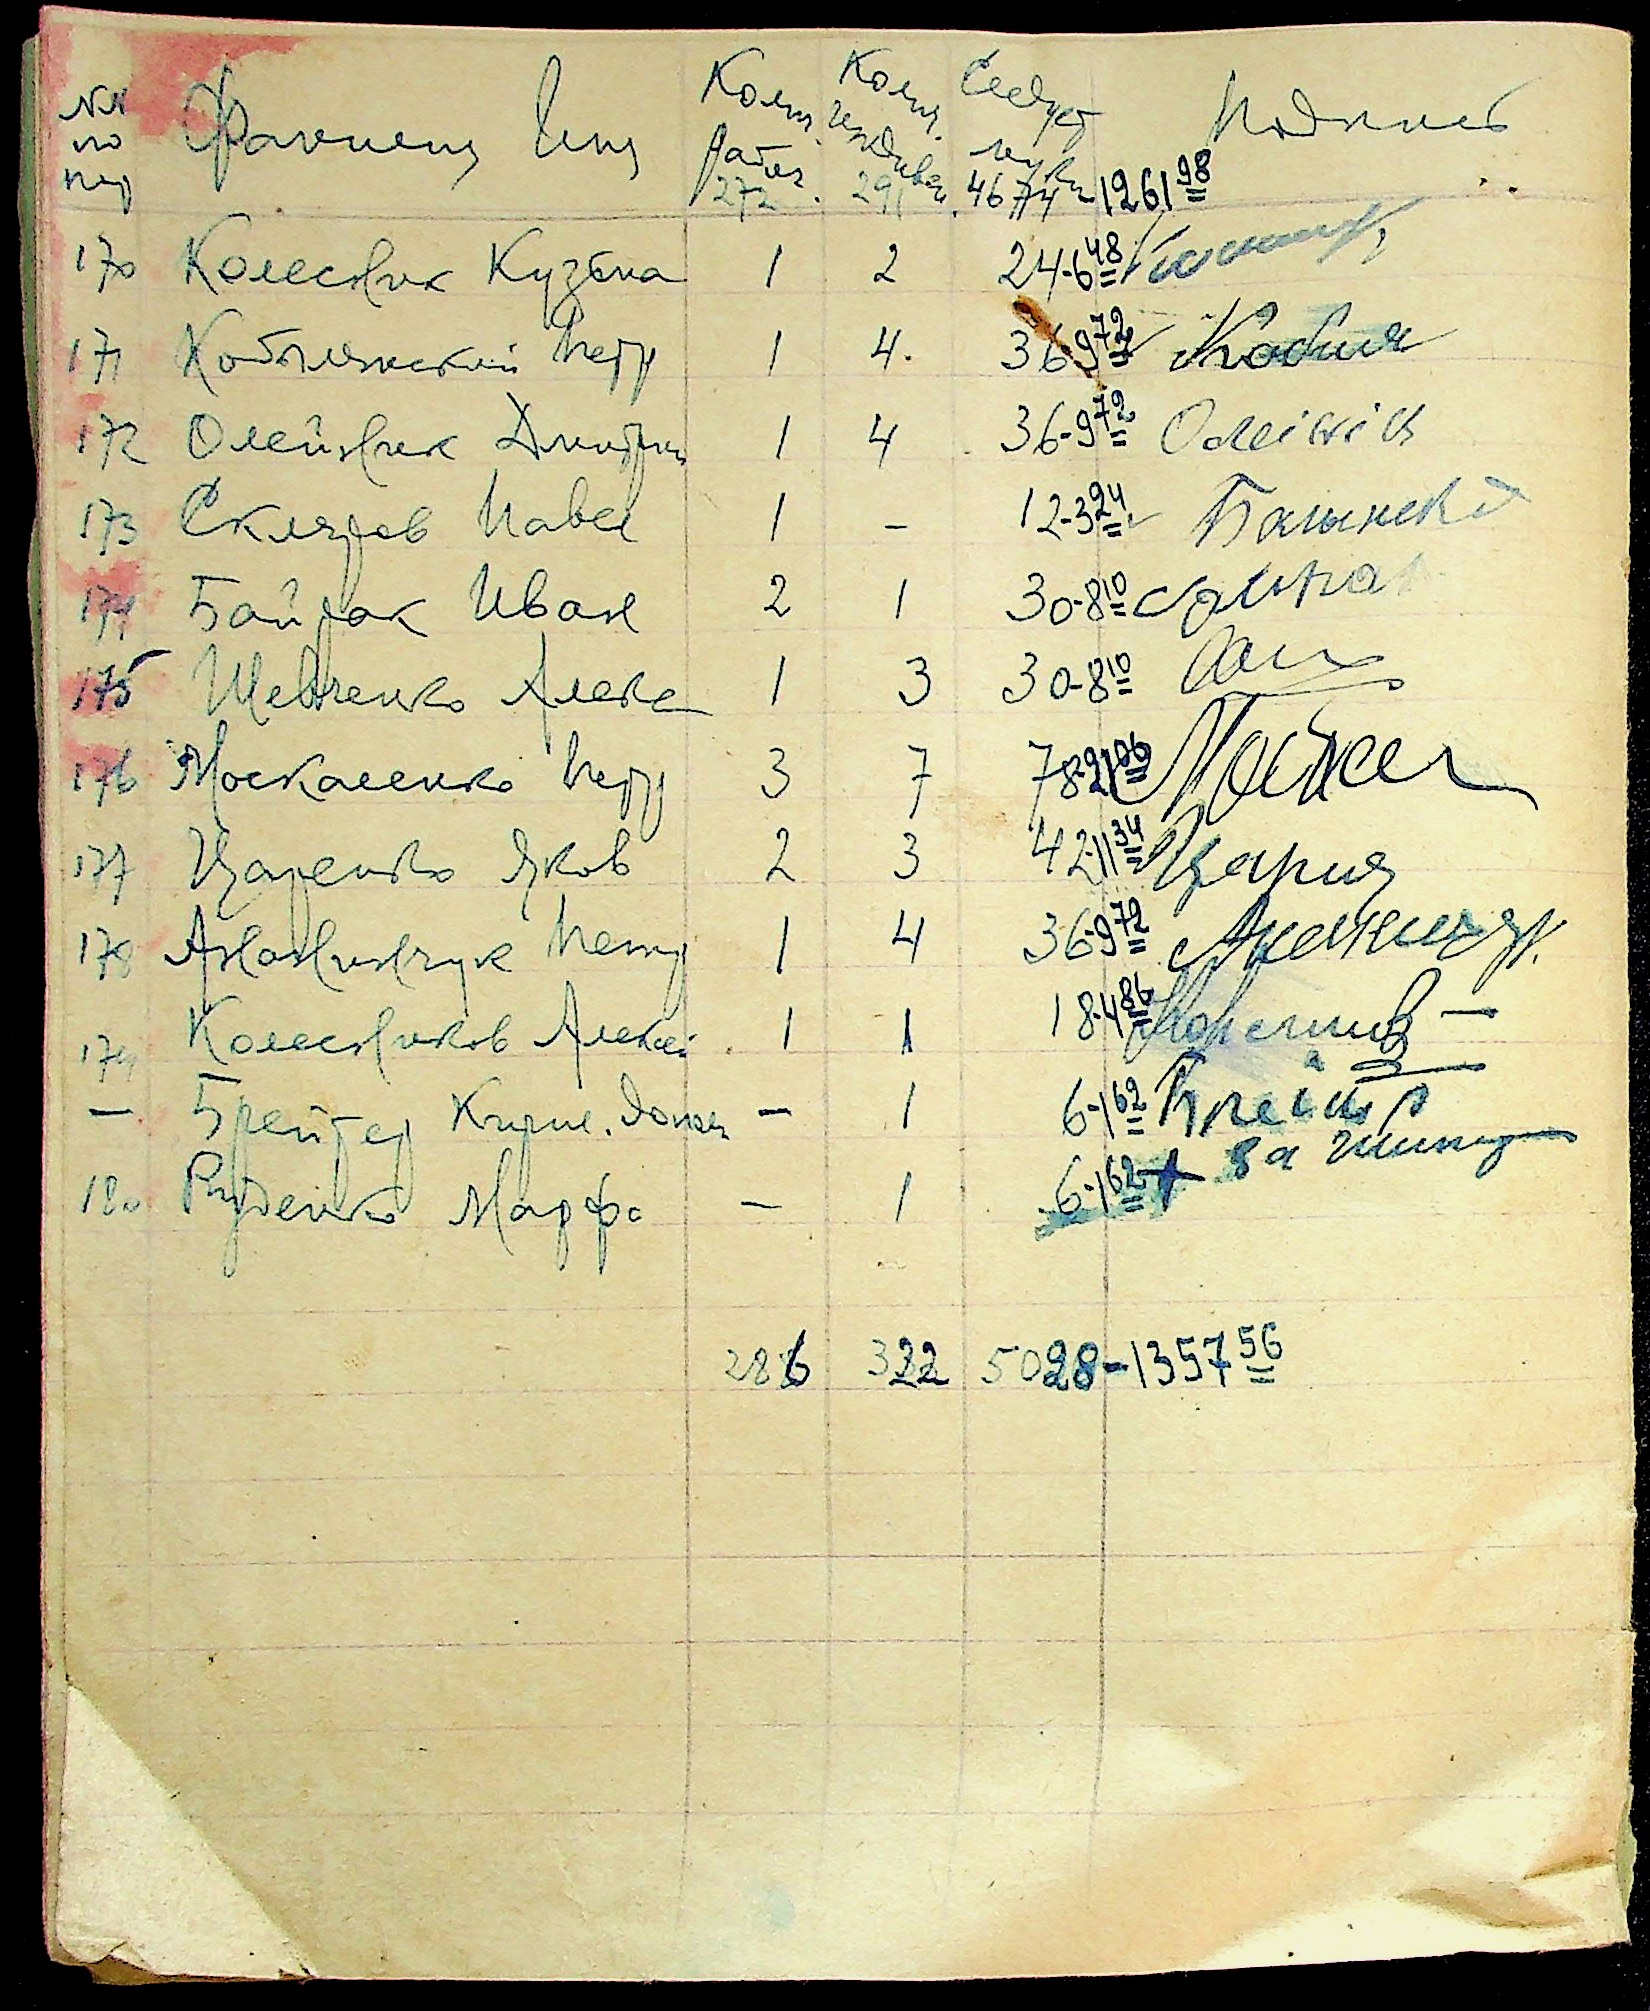 NN по пор Фамилия Имя Колич. работ. Колич. иждивен. Следует муки Подпись
272 291 4674 - 1261 98
170 Колесник Кузьма 1 2 24-6 48
171 Кобылянский Петр 1 4. 36-9 72 Кобыля
172 Олейник Дмитрий 1 4 36-9 72 Олейнік
173 Скляров Павел 1 - 12-3 24
174 Байрак Иван 2 1 30-8 10
175 Шевченко Алекс 1 3 30-8 10
176 Москаленко Петр 3 7 78-21 06 Москал
177 Царенко Яков 2 3 42-11 34 Царик
178 Анонинчук Петр 1 4 36-9 72
179 Колесников Алексей 1 1 18-4 86
— Брейтер Кирил. - 1 6-1 62 Брейтер
180 Руденко Марфа - 1 6-1 62 + за
286 322 5028 - 1357 56